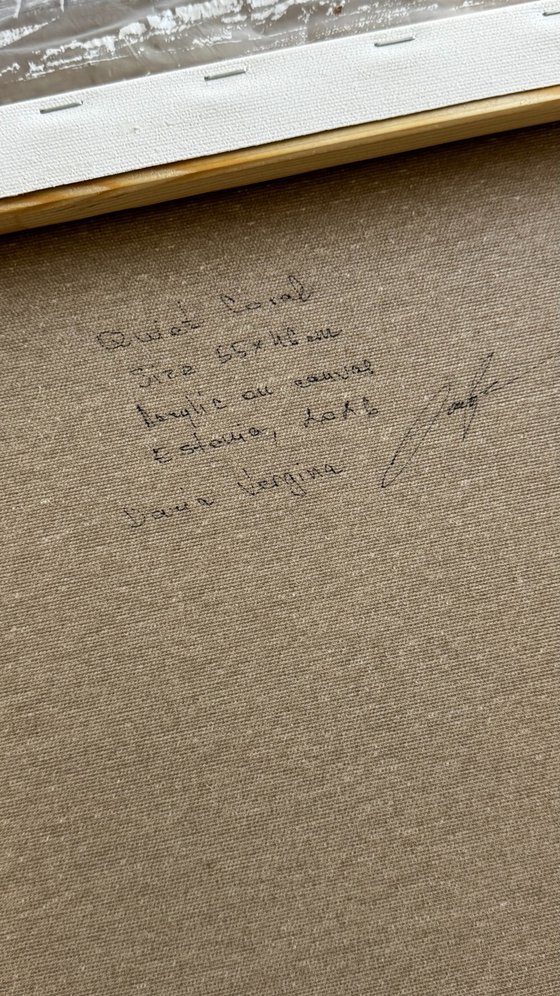 Quiet Coral
Size 55×46 cm
Acrylic on canvas
Estonia,
Daria Vergina